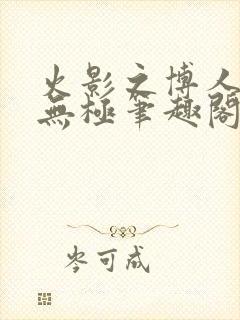 火影之博人
無極筆趣閣
岑可成